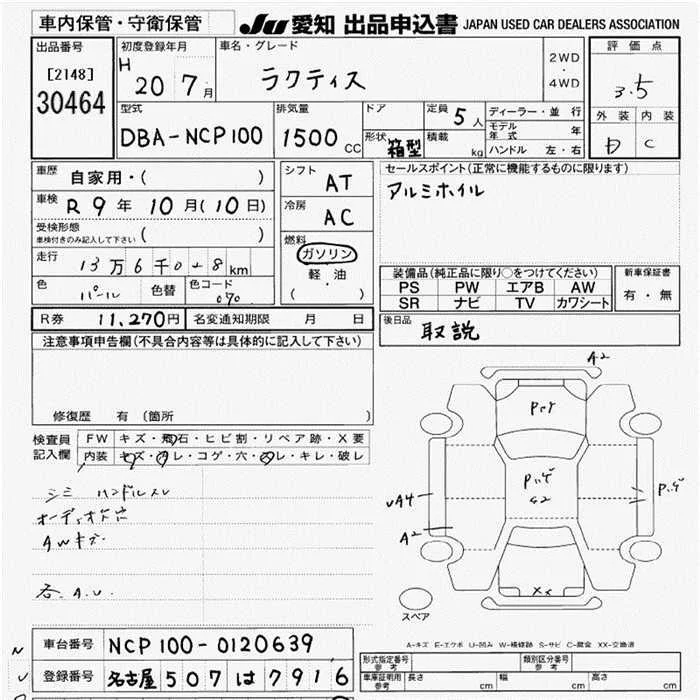 車内保管・守衛保管 JU愛知 出品申込書 JAPAN USED CAR DEALERS ASSOCIATION
出品番号 [2148] 30464
初度登録年月 H 20 7月
車名・グレード ラクティス
2WD・4WD
評価点 3.5
外装 内装 C
型式 DBA-NCP100
排気量 1500 CC
ドア
形状 箱型
定員 5人
積載 kg
ディーラー・並行
モデル年式 年
ハンドル 左・右
車歴 自家用・( )
車検 R 9年 10月(10日)
受検形態 ( )
車検付きのみ記入して下さい
走行 13万6千0 8km
色 パール 色替 色コード 070
シフト AT
冷房 AC
燃料 ガソリン
軽・油
( ・ )
セールスポイント(正常に機能するものに限ります)
アルミホイル
装備品(純正品に限り○をつけてください)
PS PW エアB AW
SR ナビ TV カワシート
新車保証書
有・無
R券 11,270円 名変通知期限 月 日
後日品 取説
注意事項申告欄(不具合内容等は具体的に記入して下さい)
修復歴 有(箇所 )
検査員記入欄
FW キズ・飛石・ヒビ割・リペア跡・X要
内装 キズ・汚レ・コゲ・穴・スレ・キレ・破レ
シミ ハンドルスレ
AWキズ
各.A.U.
A2
Pハゲ
A2
Pハゲ
XX
スペア
A-キズ E-エクボ U-凹み W-補修跡 S-サビ C-腐食 XX-交換済
車台番号 NCP100-0120639
登録番号 名古屋 507 は 7916
形式指定番号 参考
類別区分番号 参考
車庫証明用 参考 長さ cm 幅 cm 高さ cm